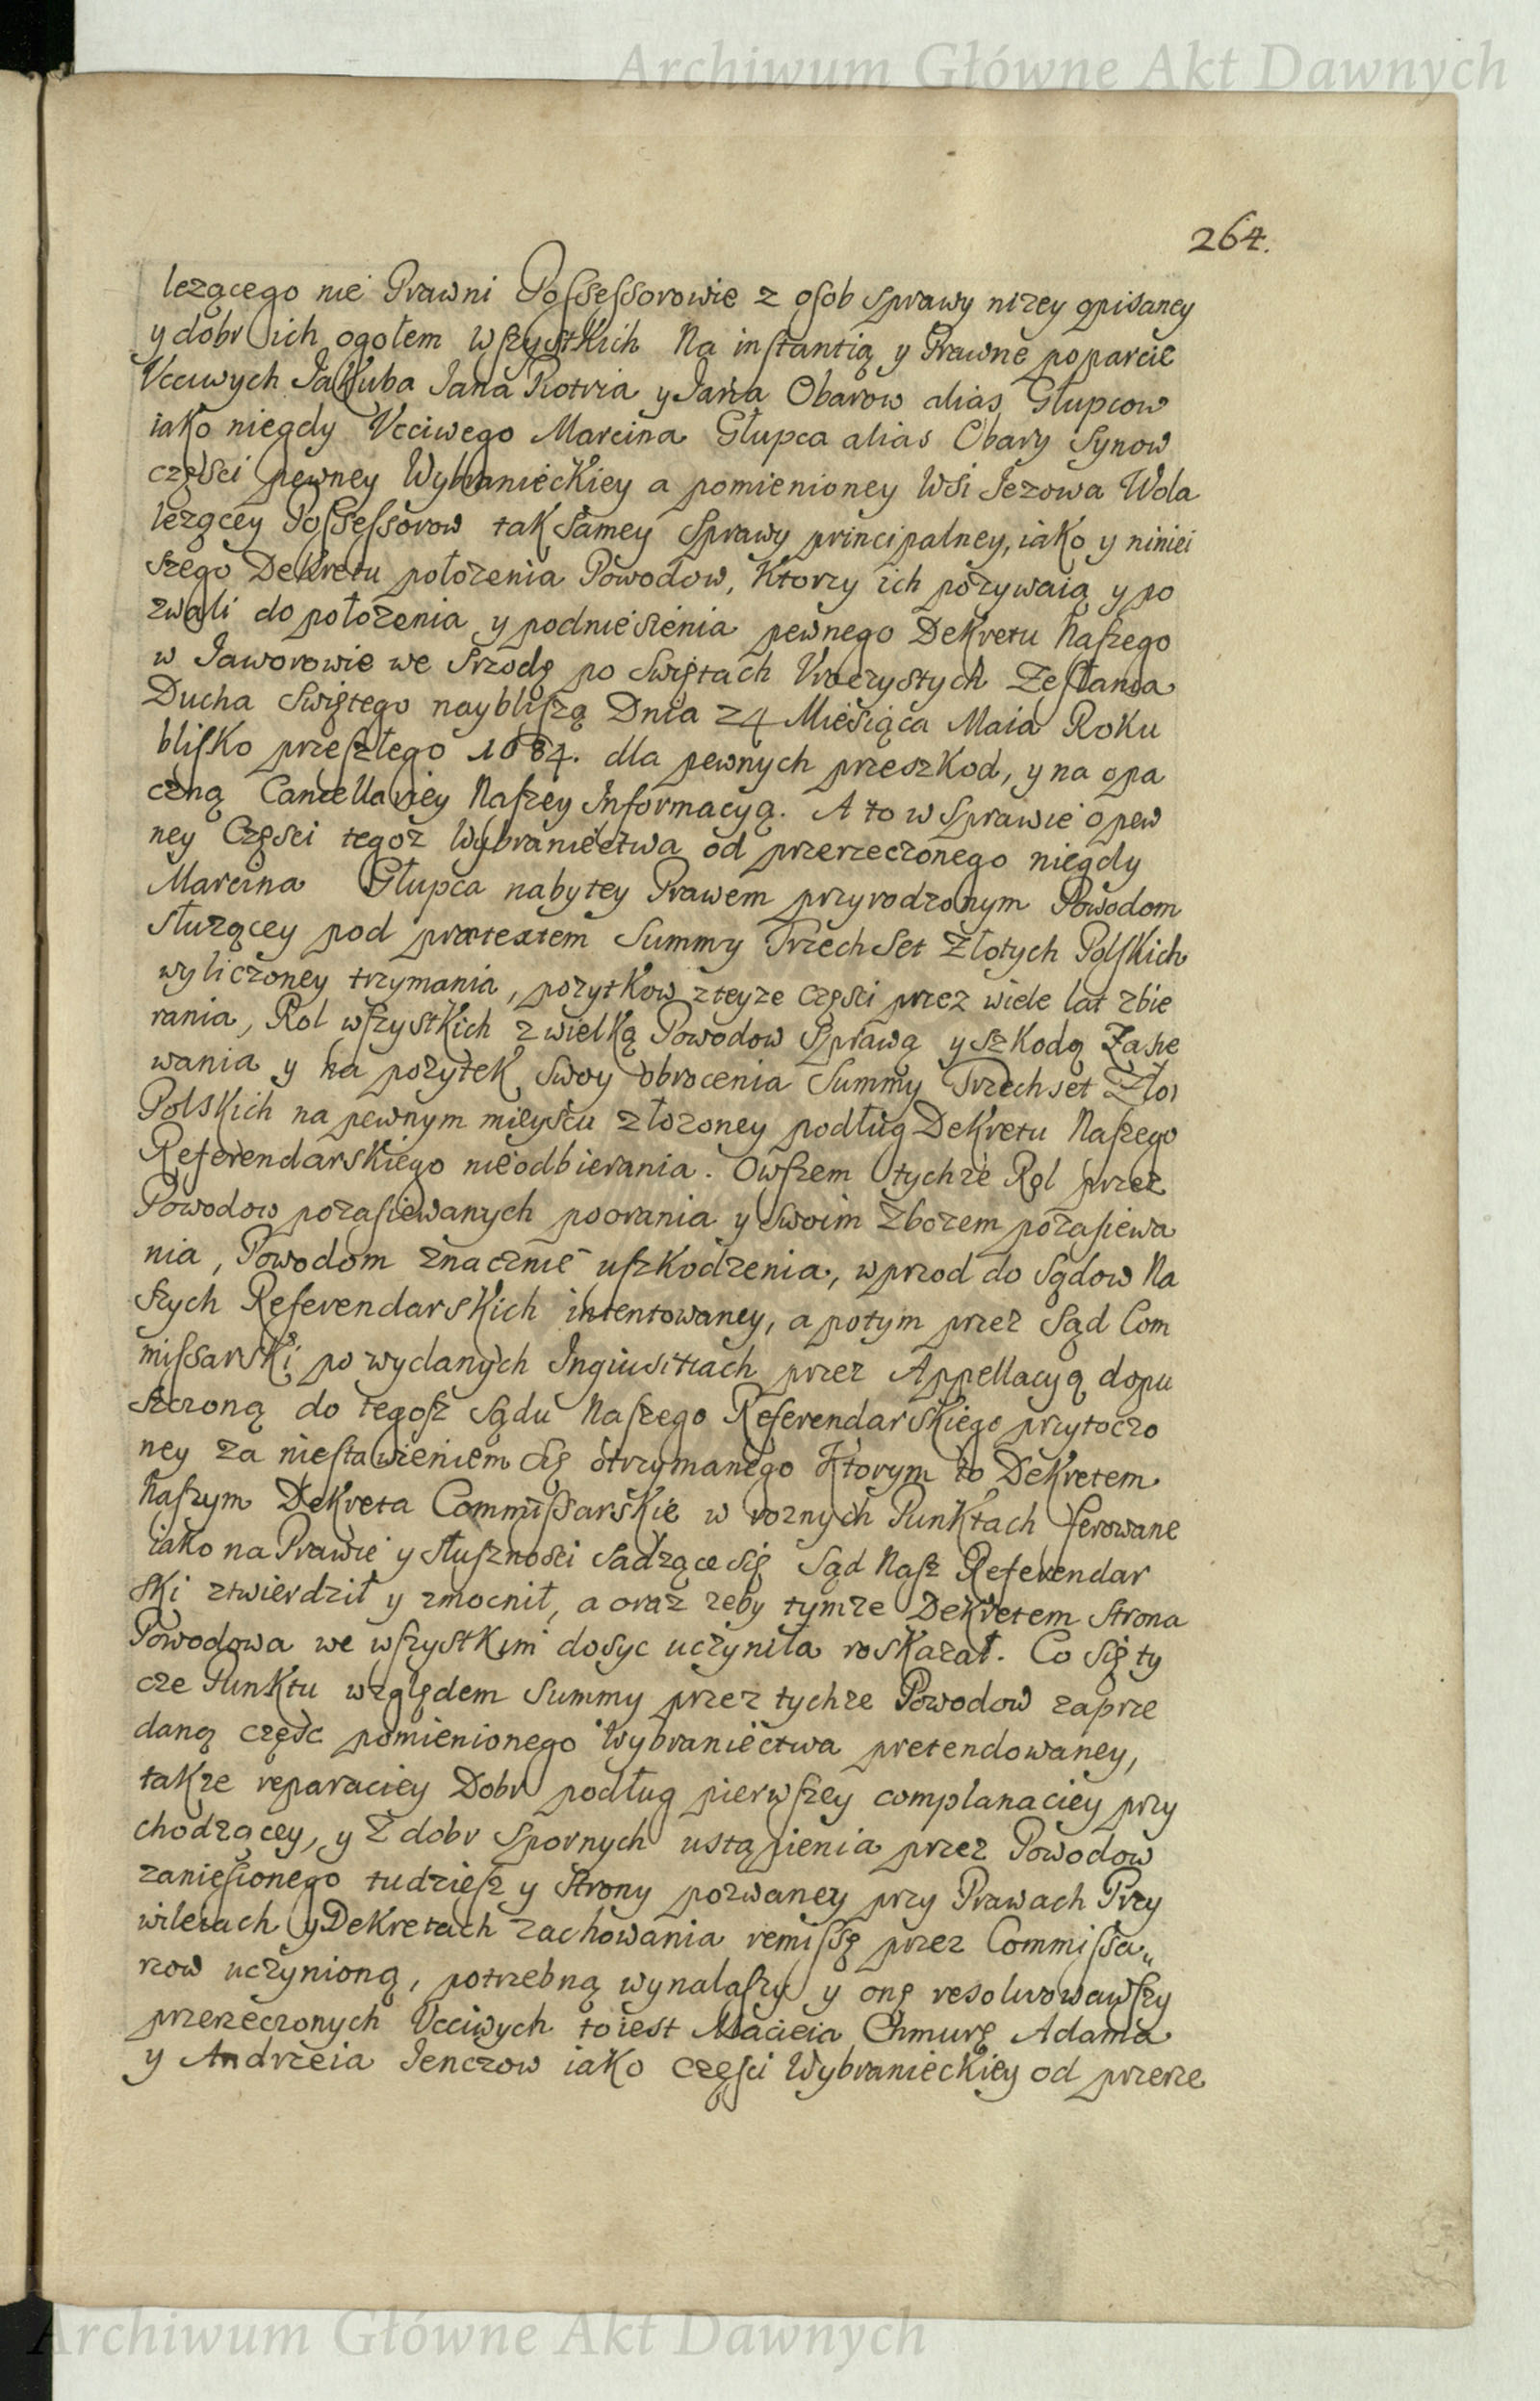 Archiwum Główne Akt Dawnych
264.
lezącego nie Prawni Possessorowie z osob sprawy nizey opisaney
y dobr ich ogołem wszystkich Na instantią y Prawne poparcie
Vcciwych Jakuba Jana Piotra y Jana Obarow alias Głupcow
iako niegdy Vcciwego Marcina Głupca alias Obary Synow
części pewney Wybranieckiey a pomienioney Wsi Jezowa Wola
lezącey Possessorow tak samey Sprawy principalney, iako y niniei
szego Dekretu połozenia Powodow, Ktorzy ich pozywaią y po
zwali do połozenia y podniesienia pewnego Dekretu Naszego
w Jaworowie we Srzodę po Swiętach Vroczystych Zesłania
Ducha Swiętego naybliszą Dnia 24 Miesiąca Maia Roku
blisko przeszłego 1684. dla pewnych przeszkod, y na opa
czną Cancellariey Naszey Informacyą. A to w Sprawie o pew
ney Części tegoz Wybraniectwa od przerzeczonego niegdy
Marcina Głupca nabytey Prawem przyrodzonym Powodom
słuzącey pod prætextem Summy Trzech Set Złotych Polskich
wyliczoney trzymania, pozytkow z teyze Części przez wiele lat zbie
rania, Rol wszystkich z wielką Powodow Sprawą y szkodą Zasie
wania y na pozytek swoy obrocenia Summy Trzechset Zło
Polskich na pewnym mieyscu złozoney podług Dekretu Naszego
Referendarskiego nieodbierania. Owszem tychze Rol przez
Powodow pozasiewanych poorania y Swoim Zbozem pozasiewa
nia, Powodom znacznie uszkodzenia, wprzod do Sądow Na
szych Referendarskich intentowaney, a potym przez Sąd Com
missarski po wydanych Inquisitiach przez Appellacyą dopu
szczoną do tegosz Sądu Naszego Referendarskiego przytoczo
ney za niestawieniem się otrzymanego Ktorym to Dekretem
Naszym Dekreta Commissarskie w roznych Punktach ferowane
iako na Prawie y słusznosci sadzące się Sąd Nasz Referendar
ski ztwierdził y zmocnił, a oraz zeby tymze Dekretem Strona
Powodowa we wszystkim dosyc uczyniła roskazał. Co się ty
cze Punktu względem Summy przez tychze Powodow zaprze
daną częsc pomienionego Wybraniectwa pretendowaney,
takze reparaciey Dobr podług pierwszey complanaciey przy
chodzącey, y z dobr Spornych ustąpienia przez Powodow
zaniesionego tudziesz y Strony pozwaney przy Prawach Przy
wileiach y Dekretach zachowania remissę przez Commissa„
rzow uczynioną, potrzebną wynalaszy y onę resolwowawszy
przerzeczonych Vcciwych to iest Macieia Chmurę Adama
y Andrzeia Jenczow iako części Wybranieckiey od przerze
Archiwum Główne Akt Dawnych